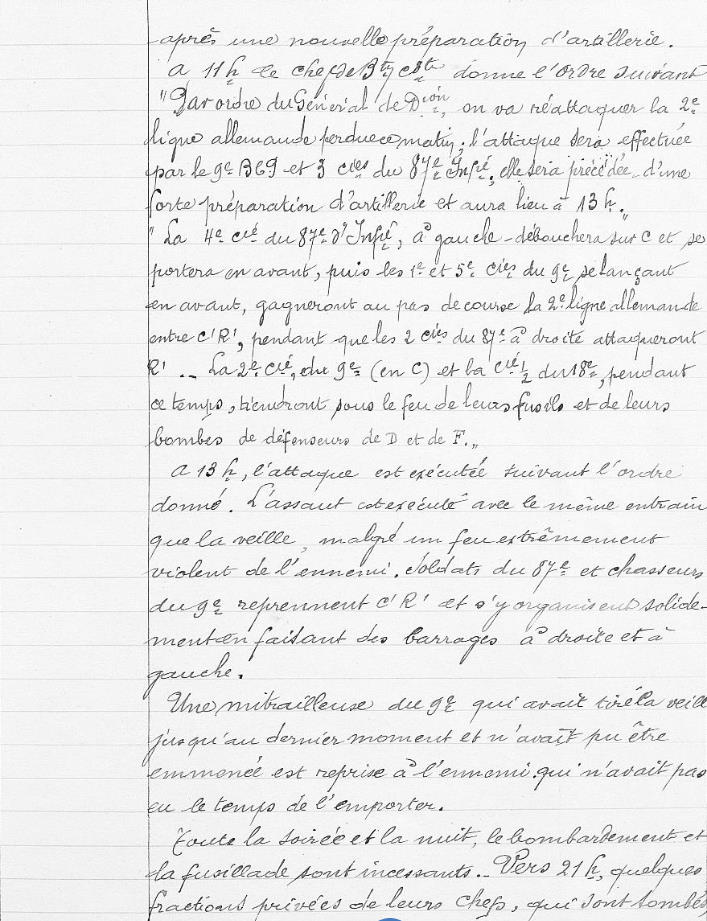 après une nouvelle préparation d'artillerie.
A 11h le chef de Btn cdt donne l'ordre suivant
"Par ordre du Général de Dion, on va réattaquer la 2e
ligne allemande perdue ce matin; l'attaque sera effectuée
par le 9e BCP et 3 cies du 87e Infie, elle sera précédée d'une
forte préparation d'artillerie et aura lieu à 13h."
"La 4e cie du 87e d'Infie, à gauche - débouchera sur C et se
portera en avant, puis les 1e et 5e cies du 9e se lançant
en avant, gagneront au pas de course la 2e ligne allemande
entre C'R', pendant que les 2 cies du 87e à droite attaqueront
R' .. La 2e cie, du 9e (en C) et la cie 1/2 du 18e, pendant
ce temps, tiendront sous le feu de leurs fusils et de leurs
bombes de défenseurs de D et de F."
A 13h, l'attaque est exécutée suivant l'ordre
donné. L'assaut est exécuté avec le même entrain
que la veille, malgré un feu extrêmement
violent de l'ennemi. Soldats du 87e et chasseurs
du 9e reprennent C'R' et s'y organisent solide-
ment en faisant des barrages à droite et à
gauche.
Une mitrailleuse du 9e qui avait tiré la veill
jusqu'au dernier moment et n'avait pu être
emmenée est reprise à l'ennemi qui n'avait pas
eu le temps de l'emporter.
Toute la soirée et la nuit, le bombardement et
la fusillade sont incessants.. Vers 21h, quelques
fractions privées de leurs chefs, qui sont tombés